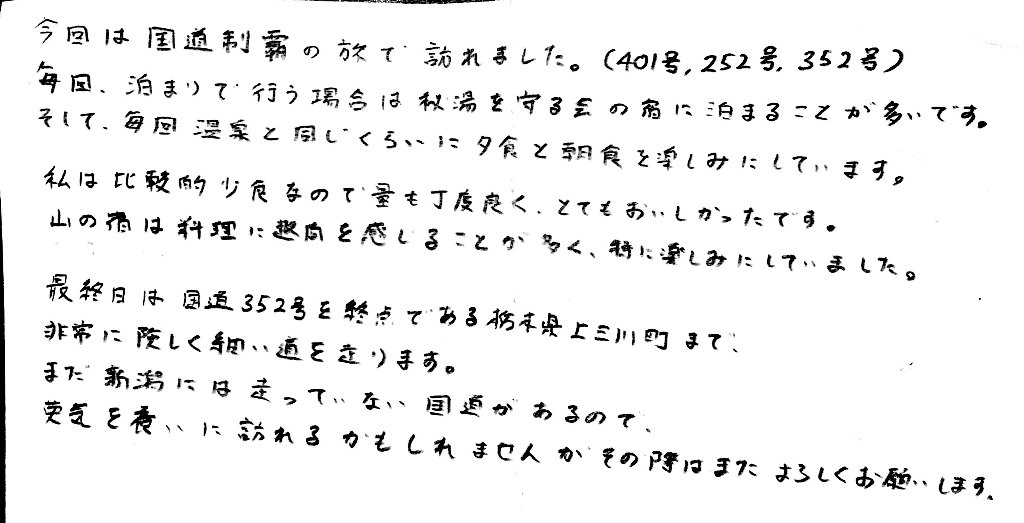 今回は国道制覇の旅で訪れました。(401号,252号,352号)
毎回、泊まりで行う場合は秘湯を守る会の宿に泊まることが多いです。
そして、毎回温泉と同じくらいに夕食と朝食を楽しみにしています。
私は比較的少食なので量も丁度良く、とてもおいしかったです。
山の宿は料理に趣向を感じることが多く、特に楽しみにしていました。
最終日は国道352号を終点である栃木県上三川町まで、
非常に険しく細い道を走ります。
まだ新潟には走っていない国道があるので、
英気を養いに訪れるかもしれませんがその際はまたよろしくお願いします。